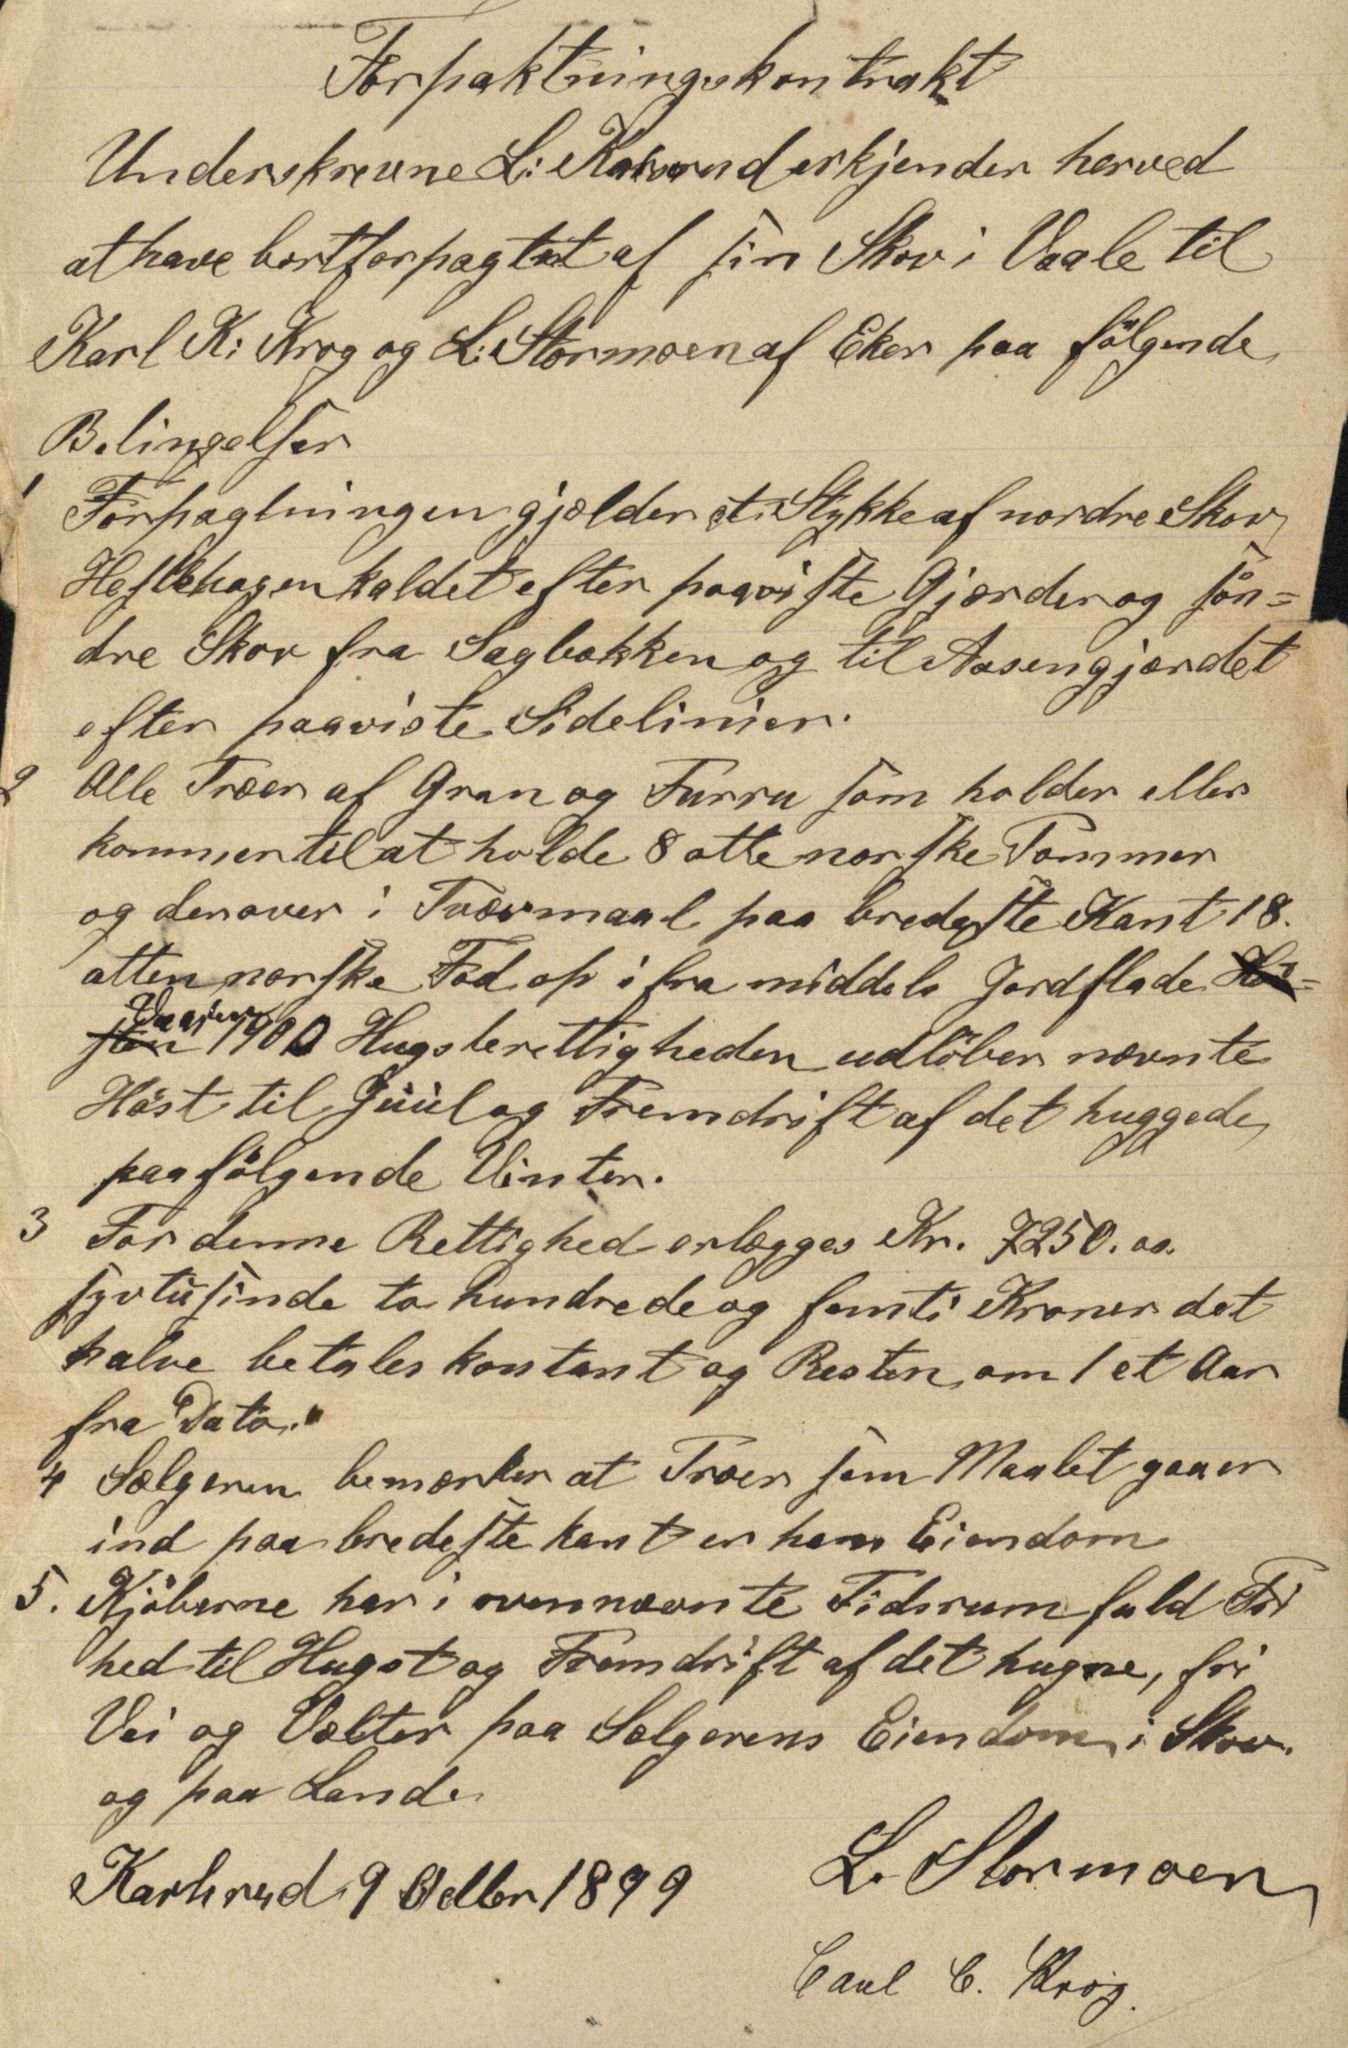 Forpaktningskontrakt
Underskrevne L: erkjender herved
at have bortforpagtet af sin Skov i Vaale til
Karl K: Krog og L: Stormoen af Eker paa fölgende
Belingelser
1 Forpagtningen gjælder et Stykke af nordre Skov
Hestehagen kaldet efter paaviste Gjærder og sön=
dre Skov fra Sagbakken og til Aasengjærdet
efter paaviste Sidelinier.
2 Alle Træer af Gran og Furru som holder eller
kommer til at holde 8 otte norske Tommer
og derover i Tværmaal paa bredeste Kant 18.
atten norske Fod op i fra middels Jordflade Hö=
sten 1900 Hugsberettigheden udlöber nævnte
Höst til Juul og Fremdrift af det huggede
paafölgende Vinter.
3 For denne Rettighed erlægges Kr. 7250.oo.
syvtusinde to hundrede og femti Kroner det
halve betales kontant og Resten om 1 et Aar
fra Dato.
4 Sælgeren bemærker at Træer som Maalet gaaer
ind paa bredeste kant er hans Eiendom
5. Kjöberne har i ovennævnte Tidsrum fuld Fri
hed til Hugst og Fremdrift af det hugne, fri
Vei og Vælter paa Sælgerens Eiendom i Skov.
og paa Lande
Karlsrud 9 Octbr 1899
L. Stormoen
Carl C. Krog.